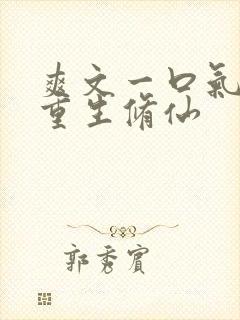 爽文一口氣
重生脩仙
郭秀賓